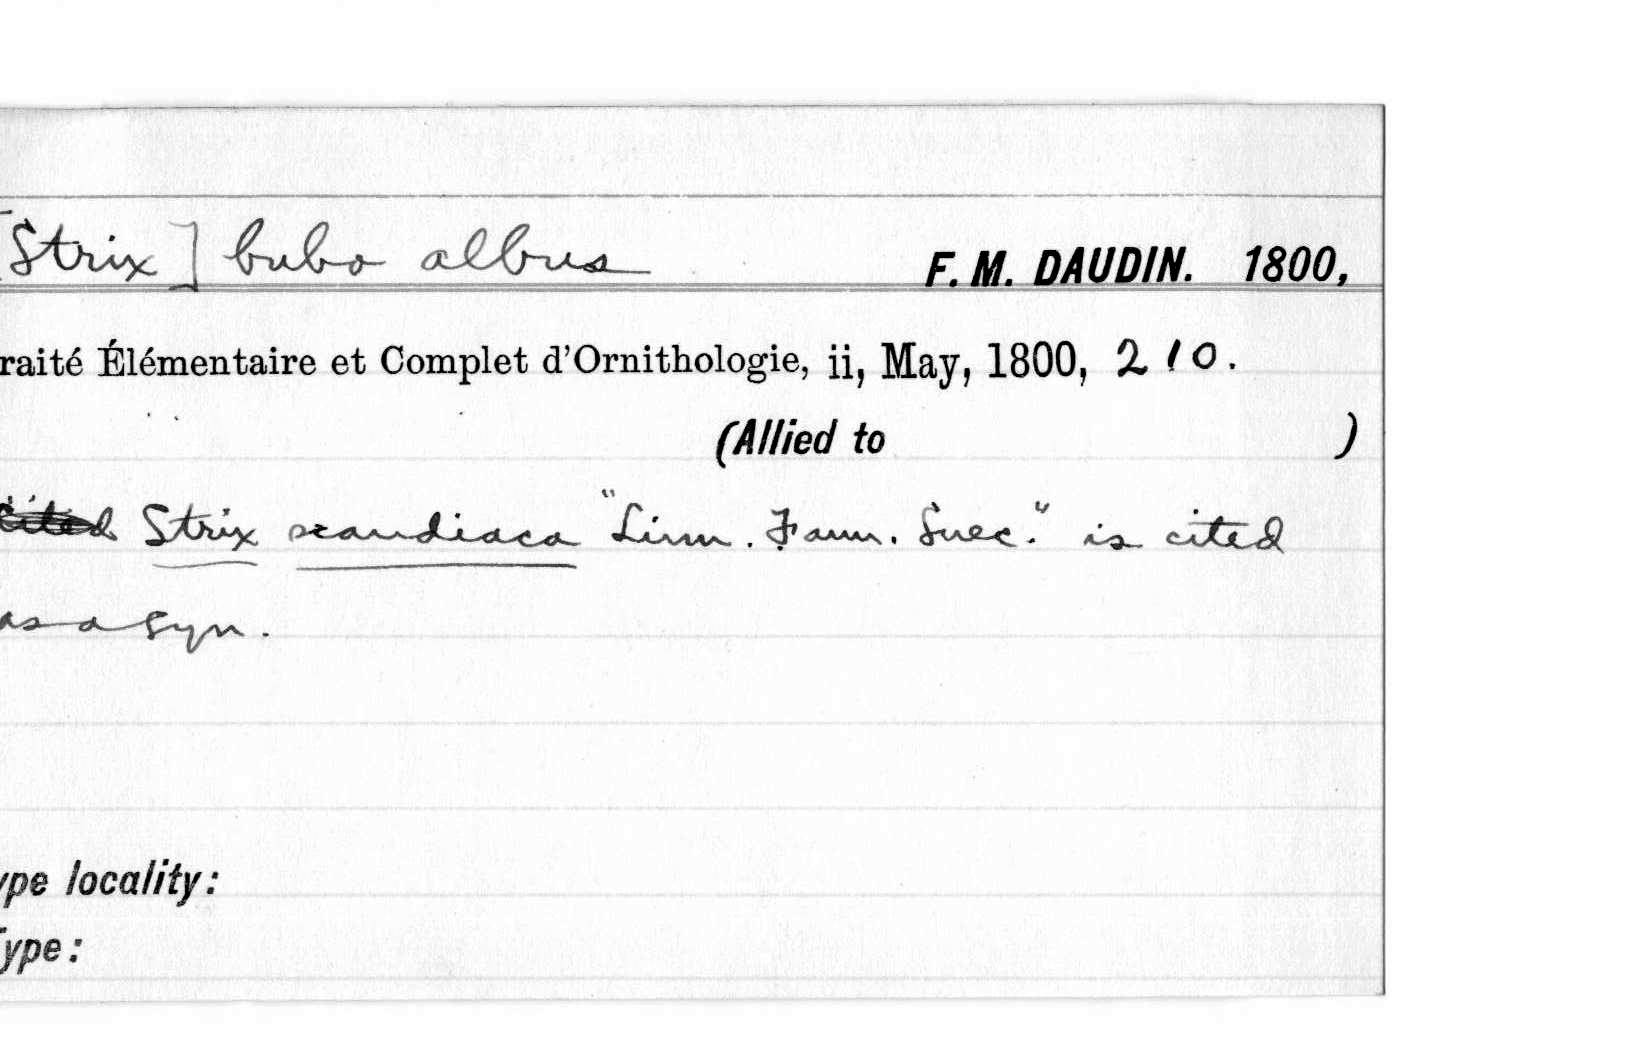 [Strix] bubo albus F. M. DAUDIN. 1800,
raité Élémentaire et Complet d'Ornithologie, ii, May, 1800, 210.
(Allied to )
cited Strix scandiaca "Linn. Faun. Suec." is cited
as a syn.
ype locality:
Type: